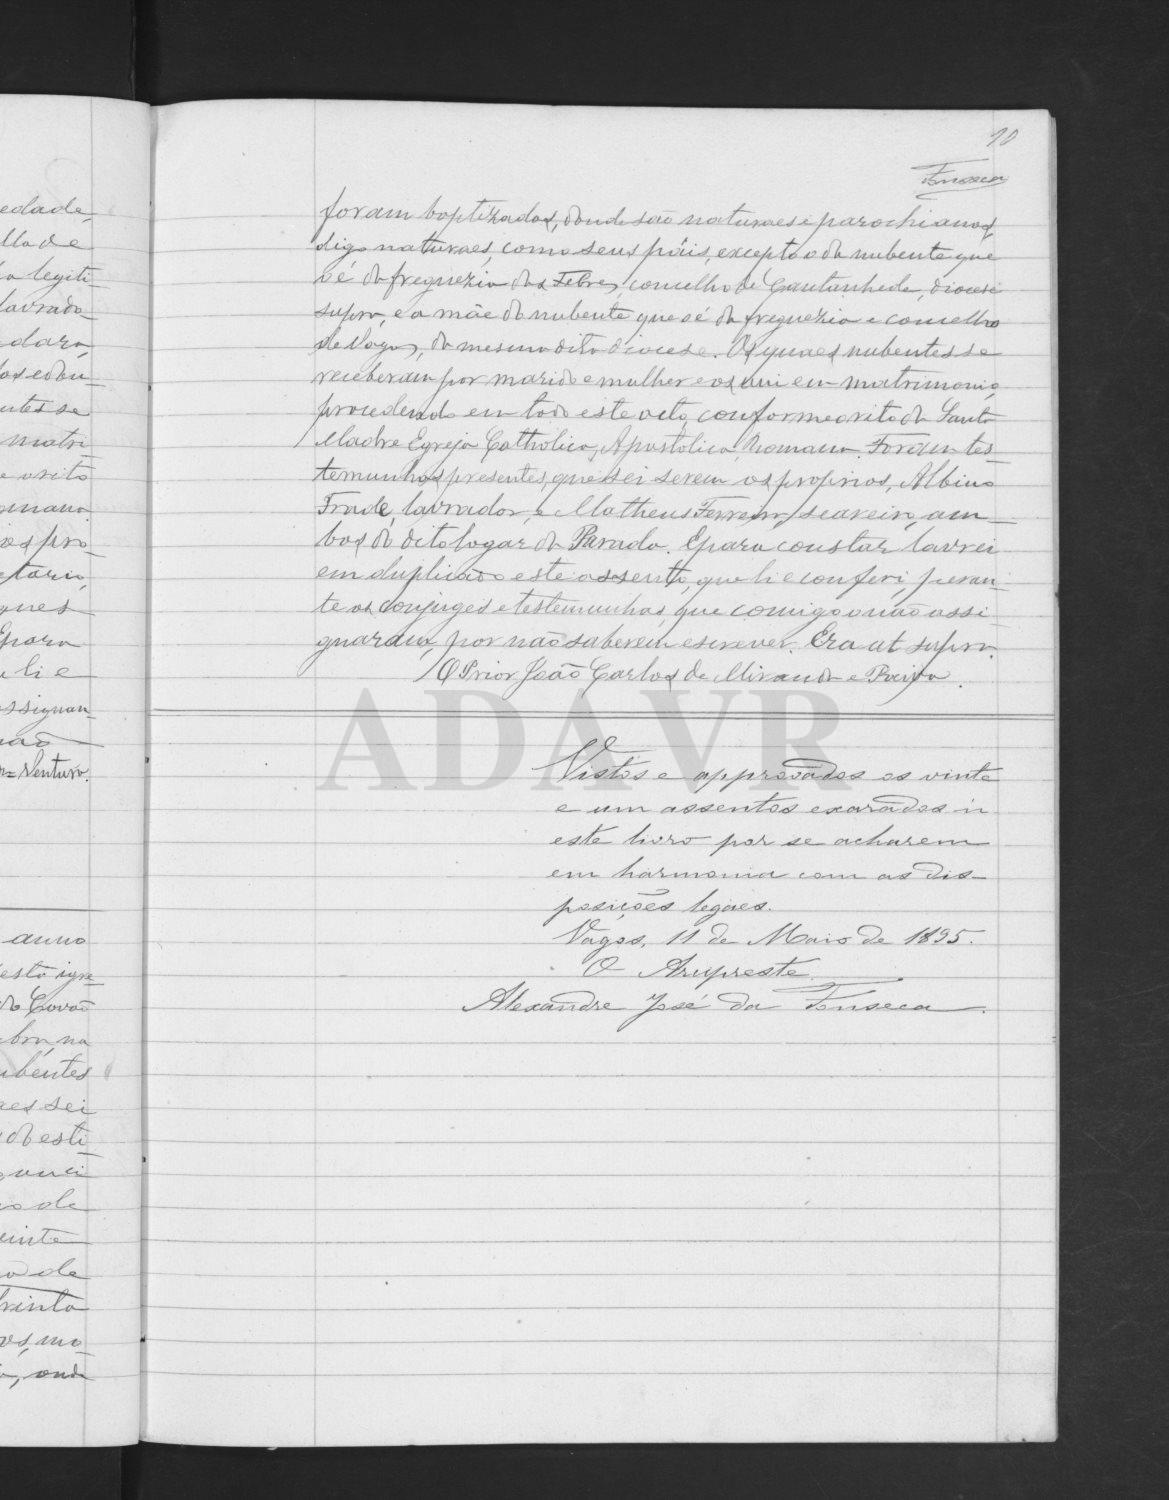 10
Fonseca
foram baptizados, donde são naturaes e parochianos,
digo naturaes, como seus páis, excepto o da nubente que
o é da freguezia das Febres, concelho de Cantanhede, diocese
supra, e a mãe da nubente que o é da freguezia e concelho
de Vagos, da mesma dita diocese. Os quaes nubentes se
receberam por marido e mulher e os uni em matrimonio,
procedendo em todo este acto, conforme o rito da Santa
Madre Egreja Catholica, Apostolica, Romana. Foram tes-
temunhas presentes, que sei serem os proprios, Albino
Frade, lavrador, e Matheus Ferreira, seareiro, am-
bos do dito logar da Parada. E para constar lavrei
em duplicado este assento, que li e conferi, peran-
te os conjuges e testemunhas, que comigo o não assi-
gnaram, por não saberem escrever. Era ut supra.
O Prior João Carlos de Miranda e Paiva.
Vistos e approvados os vinte
e um assentos exarados n'
este livro por se acharem
em harmonia com as dis-
posições legaes.
Vagos, 11 de Maio de 1895.
O Arcypreste
Alexandre José da Fonseca.
edade,
lla de
legiti-
lavrado-
utes se
matri-
e o rito
omana.
os pro-
etario,
gues
E para
li e
assignan-
não
Ventura.
anno
esta igre-
do Covão
bra, na
ubentes
aes sei
d'esti-
de
vinte
de
trinta
mo-
onde
ADAVR